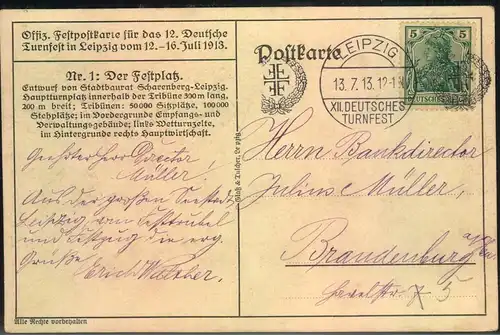 Offiz. Festpostkarte für das 12. Deutsche
Turnfest in Leipzig vom 12.–16. Juli 1913.
Nr. 1: Der Festplatz.
Entwurf von Stadtbaurat Scharenberg-Leipzig.
Hauptturnplatz innerhalb der Tribüne 300 m lang,
200 m breit; Tribünen: 50000 Sitzplätze, 100000
Stehplätze; im Vordergrunde Empfangs- und
Verwaltungsgebäude; links Wetturnzelte,
im Hintergrunde rechts Hauptwirtschaft.
Director
Müller!
Aus der großen
Leipzig, vom
und Festzug die erg.
Grüße
Erich Walther.
Alle Rechte vorbehalten
Postkarte
LEIPZIG
13.7.13.12-1
XII. DEUTSCHES
TURNFEST
5 5
Herrn Bankdirector
Julius Müller,
Brandenburg
Havelstr. 5